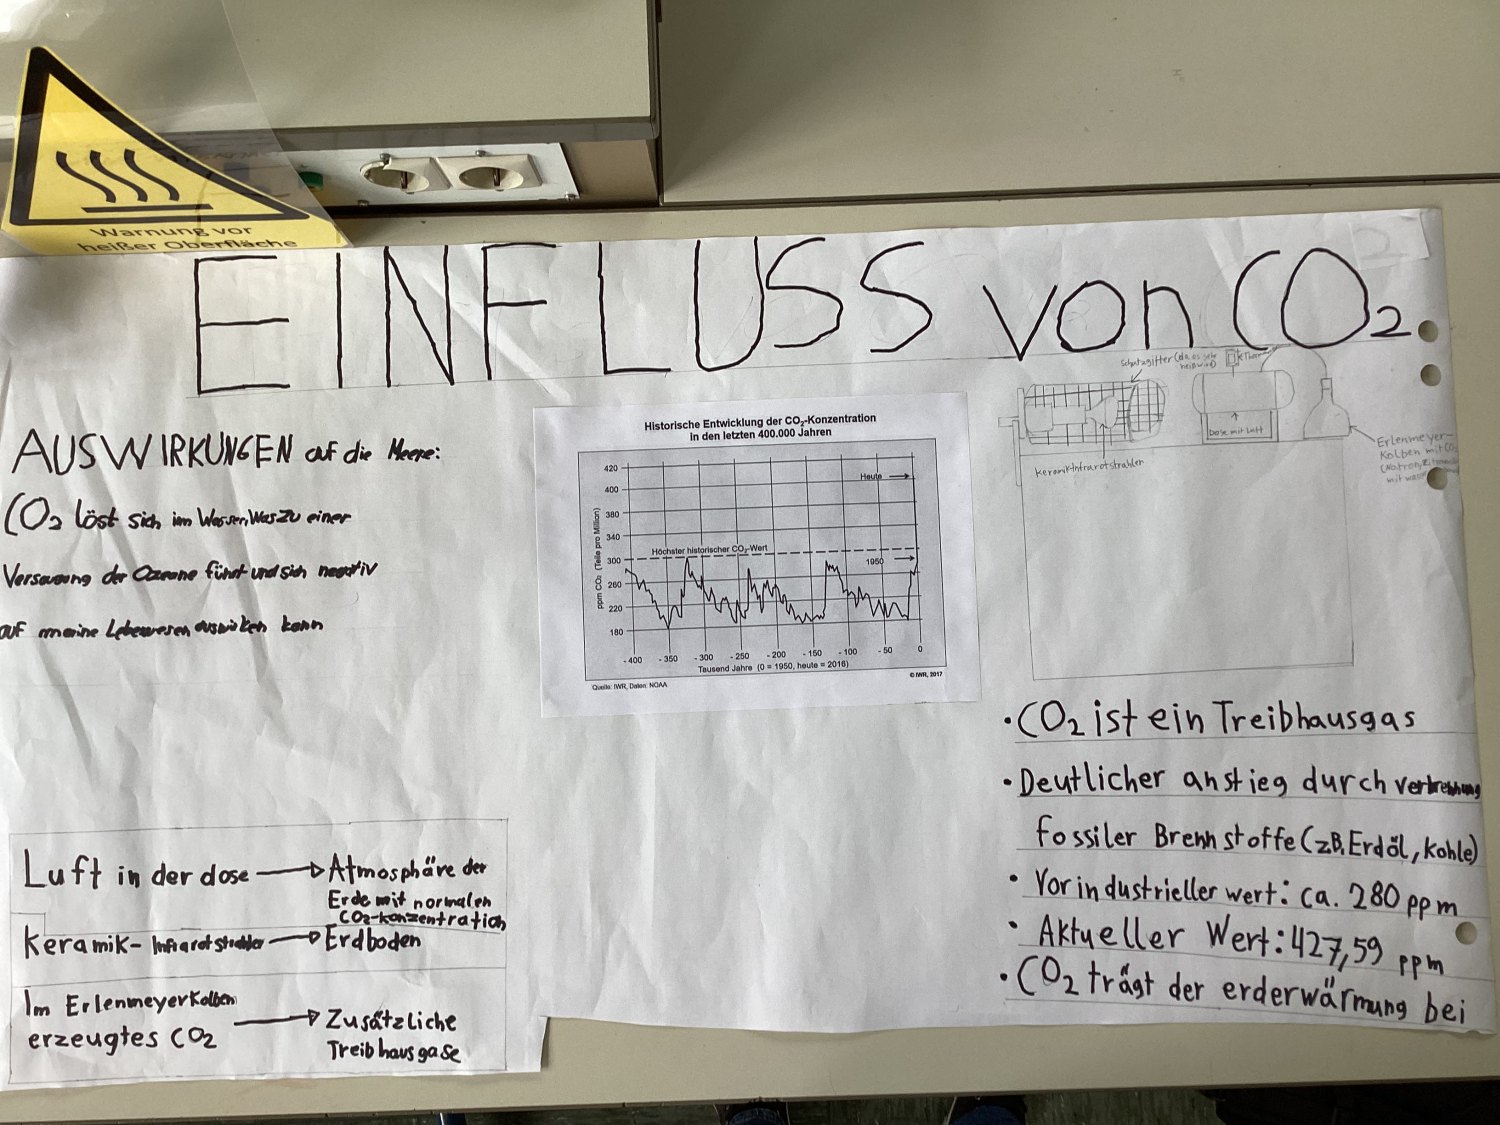 Warnung vor
heißer Oberfläche
EINFLUSS von CO2
AUSWIRKUNGEN auf die Meere:
CO2 löst sich im Wasser, Was zu einer
Versauerung der Ozeane führt und sich negativ
auf marine Lebewesen auswirken kann
Historische Entwicklung der CO2-Konzentration
in den letzten 400.000 Jahren
ppm CO2 (Teile pro Million)
420
400
380
340
300
260
220
180
Heute
Höchster historischer CO2-Wert
1950
- 400 - 350 - 300 - 250 - 200 - 150 - 100 - 50 0
Tausend Jahre (0 = 1950, heute = 2016)
Quelle: IWR, Daten: NOAA
© IWR, 2017
Schutzgitter (da es sehr
heiß wird)
Keramik-Infrarotstrahler
Dose mit Luft
Erlenmeyer-
Kolben mit CO2
mit
• CO2 ist ein Treibhausgas
• Deutlicher anstieg durch verbrennung
fossiler Brennstoffe (zB. Erdöl, Kohle)
• Vorindustrieller wert: ca. 280 ppm
• Aktueller Wert: 427,59 ppm
• CO2 trägt der erderwärmung bei
Luft in der dose → Atmosphäre der
Erde mit normalen
CO2-konzentration
Keramik- Infrarotstrahler → Erdboden
Im Erlenmeyerkolben
erzeugtes CO2 → Zusätzliche
Treibhausgase